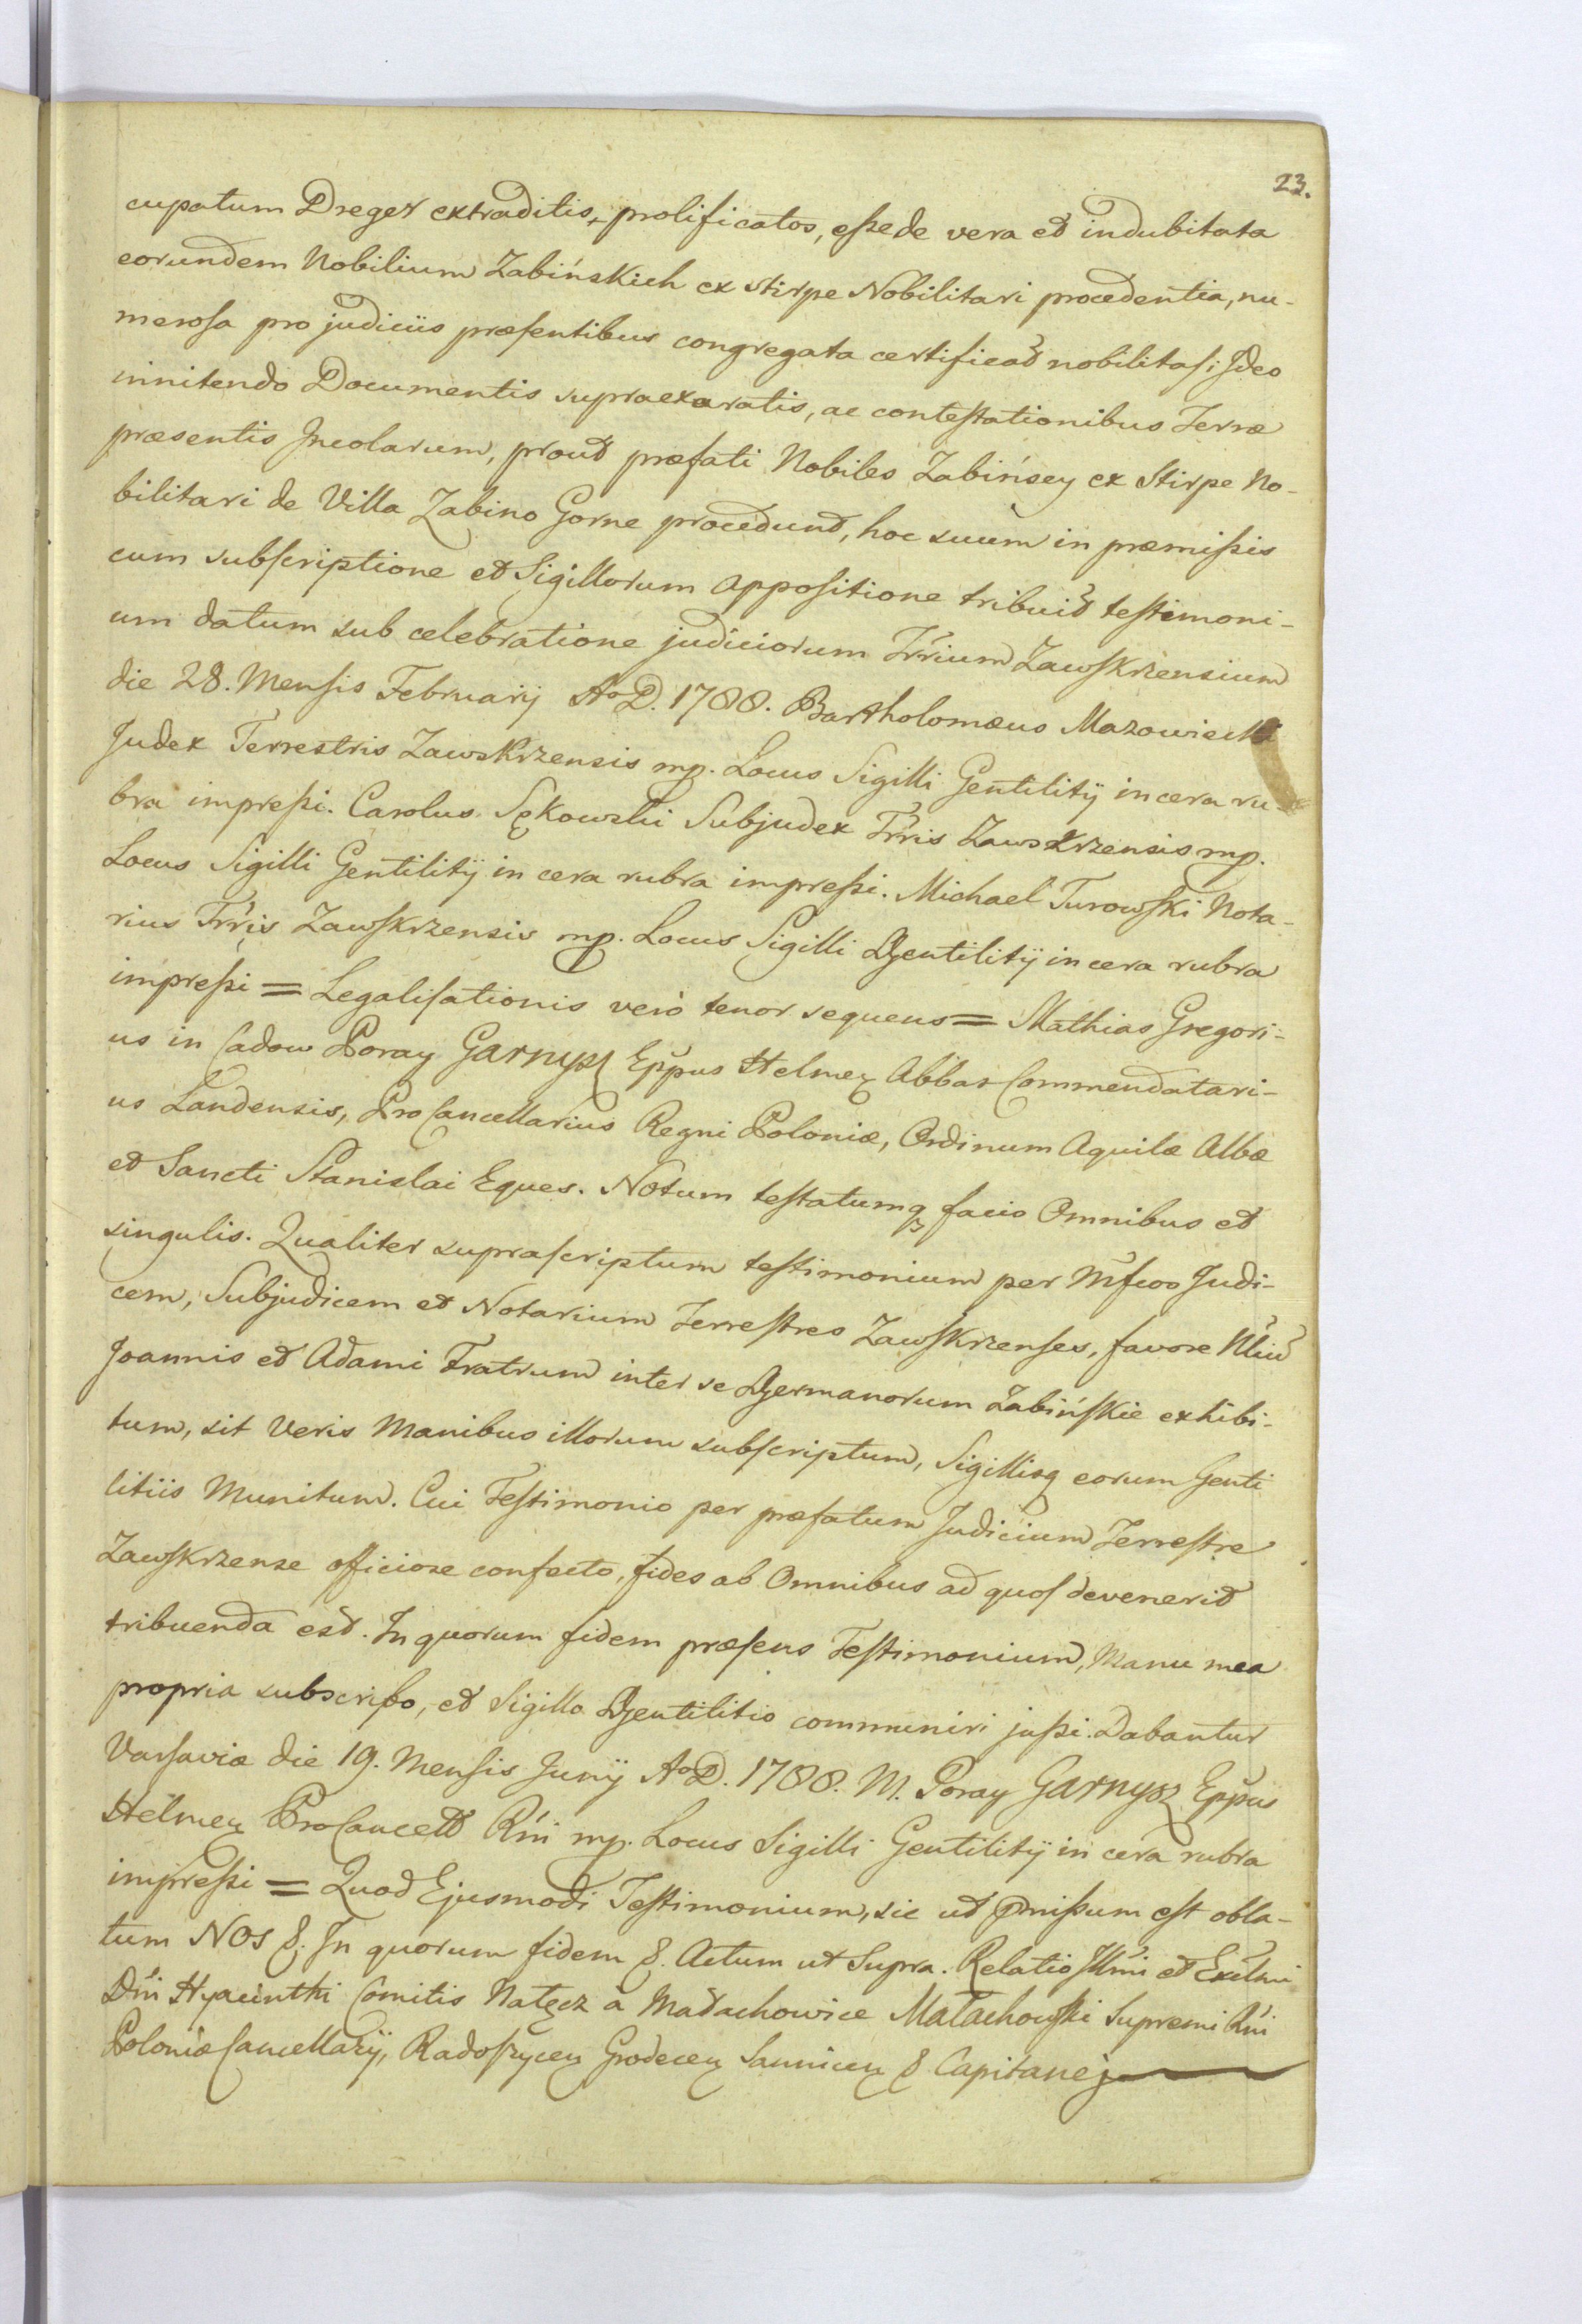 23.
cupatum Dreger extraditis, prolificatos, eſse de vera et indubitata
eorundem Nobilium Żabińskich ex stirpe Nobilitari procedentia, nu-
meroſa pro judiciis præſentibus congregata certificat nobilitaſ; Ideo
innitendo Documentis supraexaratis, ac conteſtationibus Terræ
præsentis Incolarum, prout præfati Nobiles Żabińscy ex Stirpe No-
bilitari de Villa Zabino Gorne procedunt, hoc suum in præmiſsis
cum subſcriptione et Sigillorum appoſitione tribuit teſtimoni-
um datum sub celebratione judiciorum Trrium Zawſkrzensium
die 28. Menſis Februarij AoD. 1788. Bartholomæus Mazowiecki
Judex Terrestris Zawskrzensis mp. Locus Sigilli Gentilitÿ in cera ru-
bra impreſsi. Carolus Sękowski Subjudex Trris Zawskrzensis mp.
Locus Sigilli Gentilitÿ in cera rubra impreſsi. Michael Turowſki Nota-
rius Trris Zawſkrzensis mp. Locus Sigilli Gentilitÿ in cera rubra
impreſsi = Legaliſationis verò tenor sequens = Mathias Gregori-
us in Cadow Poray Garnysz Eppus Helmeň Abbas Commendatari-
us Landensis, ProCancellarius Regni Poloniæ, Ordinum Aquilæ Albæ
et Sancti Stanislai Eques. Notum teſtatumq facio Omnibus et
singulis. Qualiter supraſcriptum teſtimonium per Mfcos Judi-
cem, Subjudicem et Notarium Terreſtres Zawſkrzenſes, favore Nliũ
Joannis et Adami Fratrum inter se Germanorum Żabińſkie exhibi-
tum, sit Veris Manibus illorum subſcriptum, Sigillisq eorum Genti
litiis Munitum. Cui Teſtimonio per præfatum Judicium Terreſtre
Zawſkrzense officiose confecto, fides ab Omnibus ad quoſ devenerit
tribuenda est. In quorum fidem præſens Teſtimonium, Manu mea
propria subscribo, et Sigillo Gentilitio communiri juſsi. Dabantur
Varſaviæ die 19. Menſis Junÿ AoD. 1788. M. Poray Garnysz Eppus
Helmeň ProCancell Rni mp. Locus Sigilli Gentilitÿ in cera rubra
impreſsi = Quod Ejusmodi Teſtimonium, sic ut pmiſsum eſt obla-
tum Nos &. In quorum fidem &. Actum ut Supra. Relatio Illmi et Excellmi
Dni Hyacinthi Comitis Nałęcz à Małachowice Małachowſki Supremi Rni
Poloniæ Cancellarÿ, Radoſzyceň Grodeceň Sannicen & Capitanej